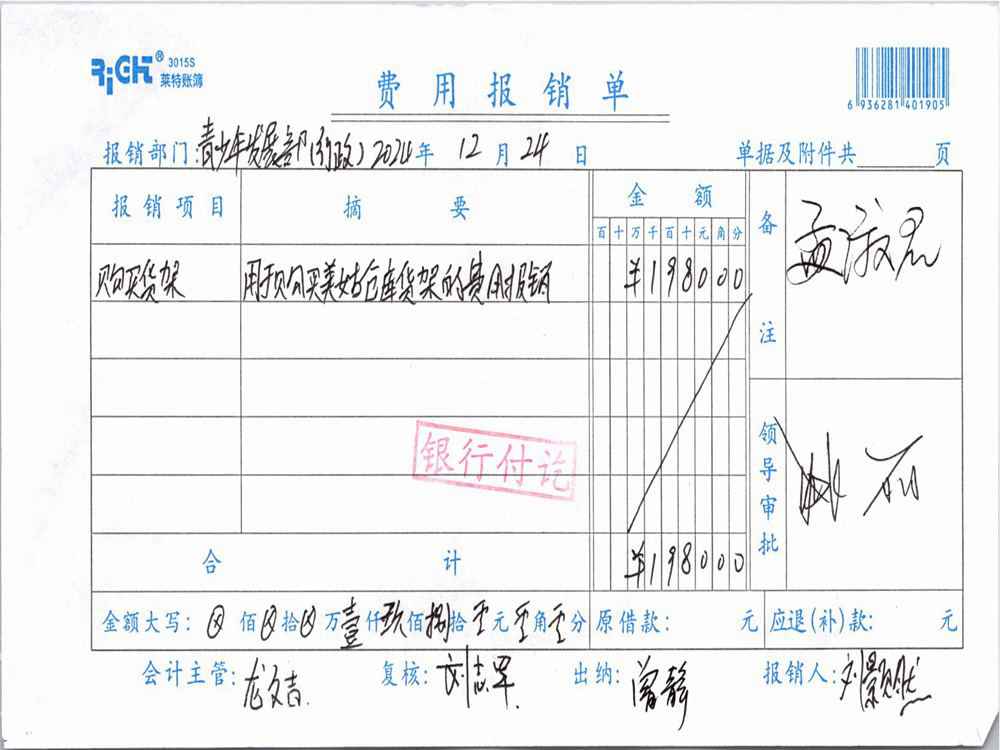 RiGHT® 3015S
莱特账簿
费用报销单
6 936281 401905
报销部门:青少年发展部(行政) 2024年 12月 24日 单据及附件共 页
报销项目 摘要 金额 备注
百十万千百十元角分
购买货架 用于购买美姑仓库货架的费用报销 ¥1980.00
孟淑君
银行付讫
领导审批
合计 ¥1980.00
金额大写: ⊗佰⊗拾⊗万壹仟玖佰捌拾零元零角零分 原借款: 元 应退(补)款: 元
会计主管: 龙文吉 复核: 刘志军 出纳: 曾静 报销人: 刘景